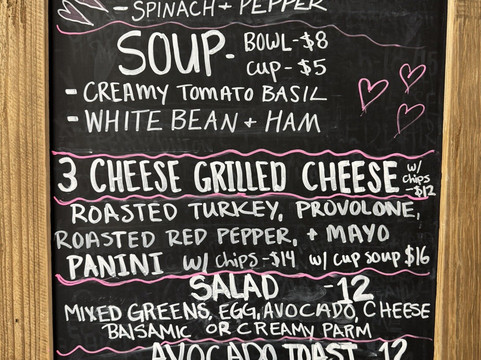 - SPINACH + PEPPER
SOUP- BOWL-$8
CUP-$5
- CREAMY TOMATO BASIL
- WHITE BEAN + HAM
3 CHEESE GRILLED CHEESE w/ chips -$12
ROASTED TURKEY, PROVOLONE,
ROASTED RED PEPPER, + MAYO
PANINI w/ chips -$14 w/ cup soup $16
SALAD -12
MIXED GREENS, EGG, AVOCADO, CHEESE
BALSAMIC OR CREAMY PARM
AVOCADO TOAST 12